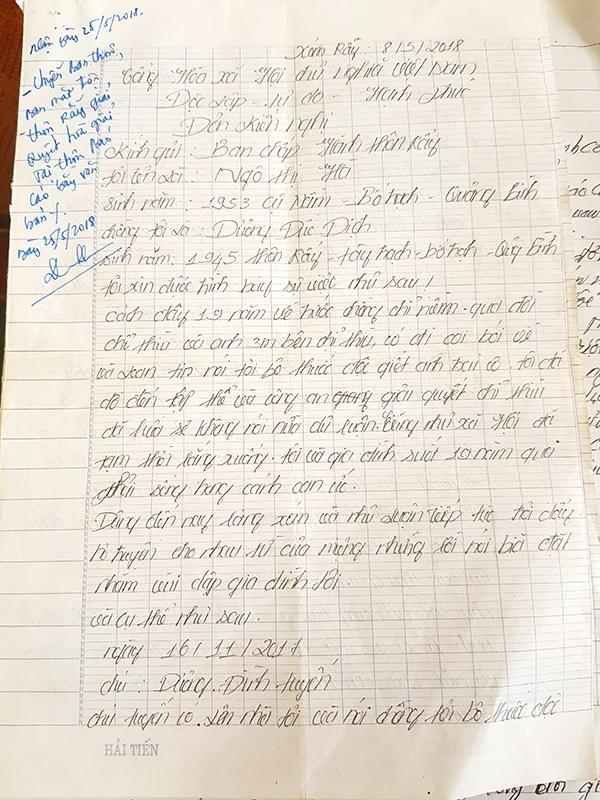 nhận ngày 25/5/2018.
- chuyển ban thôn,
ban mặt trận
thôn Rẫy giải
quyết hòa giải
Tại thôn báo
cáo bằng văn
bản/.
ngày 25/5/2018
Xóm Rẫy : 8/5/2018
Cộng Hòa xã Hội chủ Nghĩa Việt Nam
Độc lập - Tự do - Hạnh phúc
Đơn kiến nghị
Kính gửi : Ban chấp Hành thôn Rẫy
tôi tên là : Ngô Thị Hà
sinh năm : 1953 - Bố trạch - Quảng Bình
chồng tôi là : Dương Đức Dịch
sinh năm : 1945 thôn Rẫy - tây trạch - bố trạch - Quảng Bình
tôi xin được trình bày sự việc như sau !
cách đây 19 năm về trước chồng chị niệm qua đời
chị thủy và anh em bên chị thủy, có đi coi bói về
và loan tin nói tôi bỏ thuốc độc giết anh
đã đến tập thể và công an giải quyết chị thủy
đã hứa sẽ không nói nữa dư luận cũng như xã Hội đã
tạm thời lắng xuống. tôi và gia đình suốt 19 năm qua
phải sống trong cảnh oan ức.
Đùng đến nay làng xóm và dư luận tiếp tục trỗi dậy
họ truyền cho nhau từ của miệng những lời nói bịa đặt
nhằm vùi dập gia đình tôi
và cụ thể như sau.
ngày 16/11/2017
chú : Dương Đình tuyến
chú tuyến có lên nhà tôi và nói đồng tôi bỏ thuốc độc
HẢI TIẾN